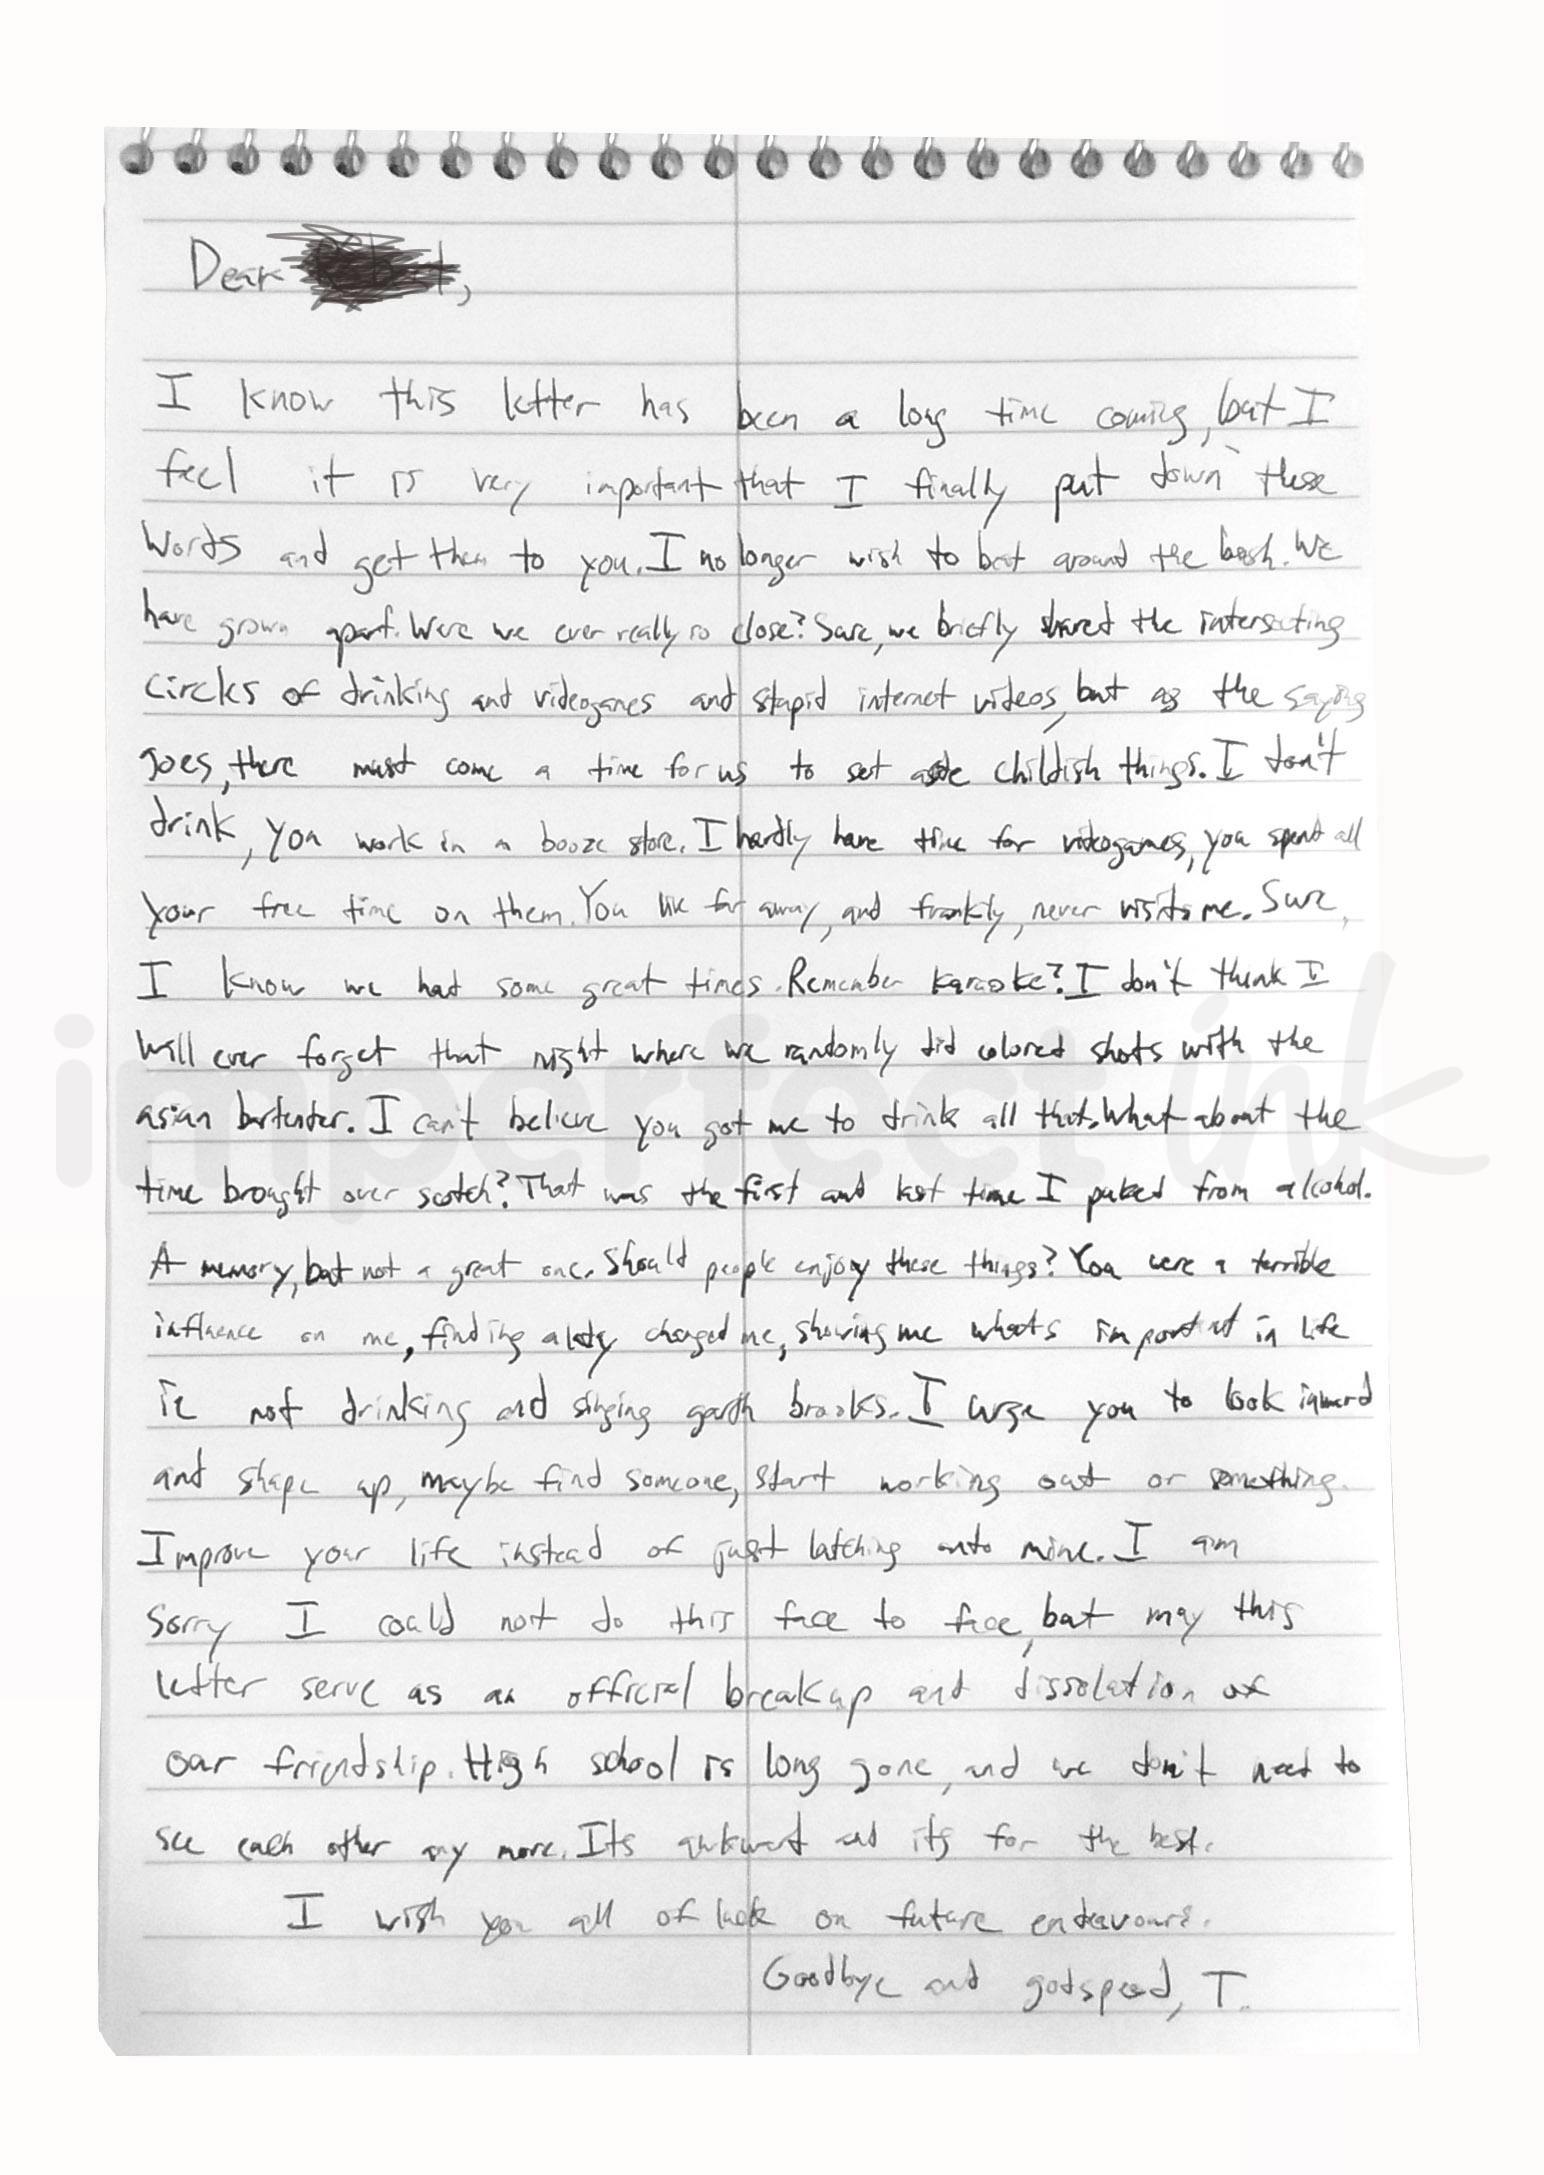 Dear
I know this letter has been a long time coming, but I
feel it is very important that I finally put down these
words and get them to you. I no longer wish to beat around the bush. We
have grown apart. Were we ever really so close? Sure, we briefly shared the intersecting
circles of drinking and videogames and stupid internet videos, but as the saying
goes, there must come a time for us to set aside childish things. I don't
drink, you work in a booze store. I hardly have time for videogames, you spend all
your free time on them. You live far away, and frankly, never visits me. Sure,
I know we had some great times. Remember karaoke? I don't think I
will ever forget that night where we randomly did colored shots with the
asian bartender. I can't believe you got me to drink all that. What about the
time brought over scotch? That was the first and last time I puked from alcohol.
A memory, but not a great one. Should people enjoy these things? You were a terrible
influence on me, finding a lady changed me, showing me whats important in life
ie not drinking and singing garth brooks. I urge you to look inward
and shape up, maybe find someone, start working out or something.
Improve your life instead of just latching onto mine. I am
sorry I could not do this face to face, but may this
letter serve as an official breakup and dissolation of
our friendship. High school is long gone, and we don't need to
see each other any more. Its awkward and its for the best.
I wish you all of luck on future endeavours.
Goodbye and godspeed, T.
imperfect ink